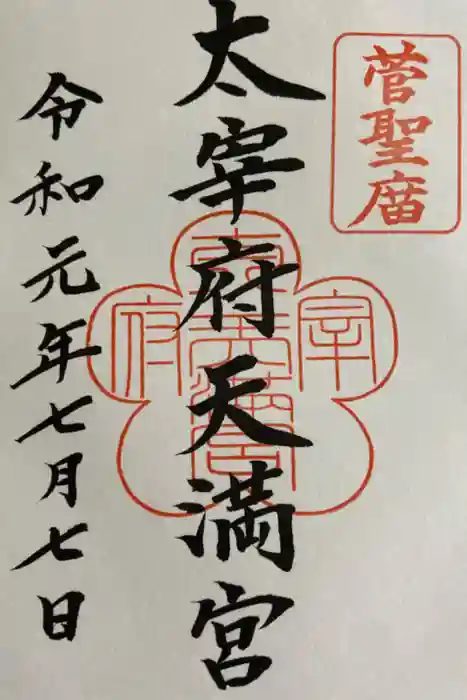 菅聖廟
太宰府天満宮
令和元年七月七日